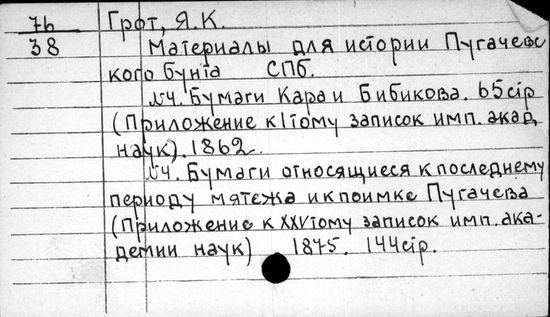 76 Грот, Я.К.
38 Материалы для истории Пугачевс
кого бунта СПб.
№ч. Бумаги Кара и Бибикова. 65стр
(Приложение к I тому записок имп. акад.
наук). 1862.
№ч. Бумаги относящиеся к последнему
периоду мятежа и к поимке Пугачева
(Приложение к XXV тому записок имп. ака-
демии наук) 1875. 144стр.